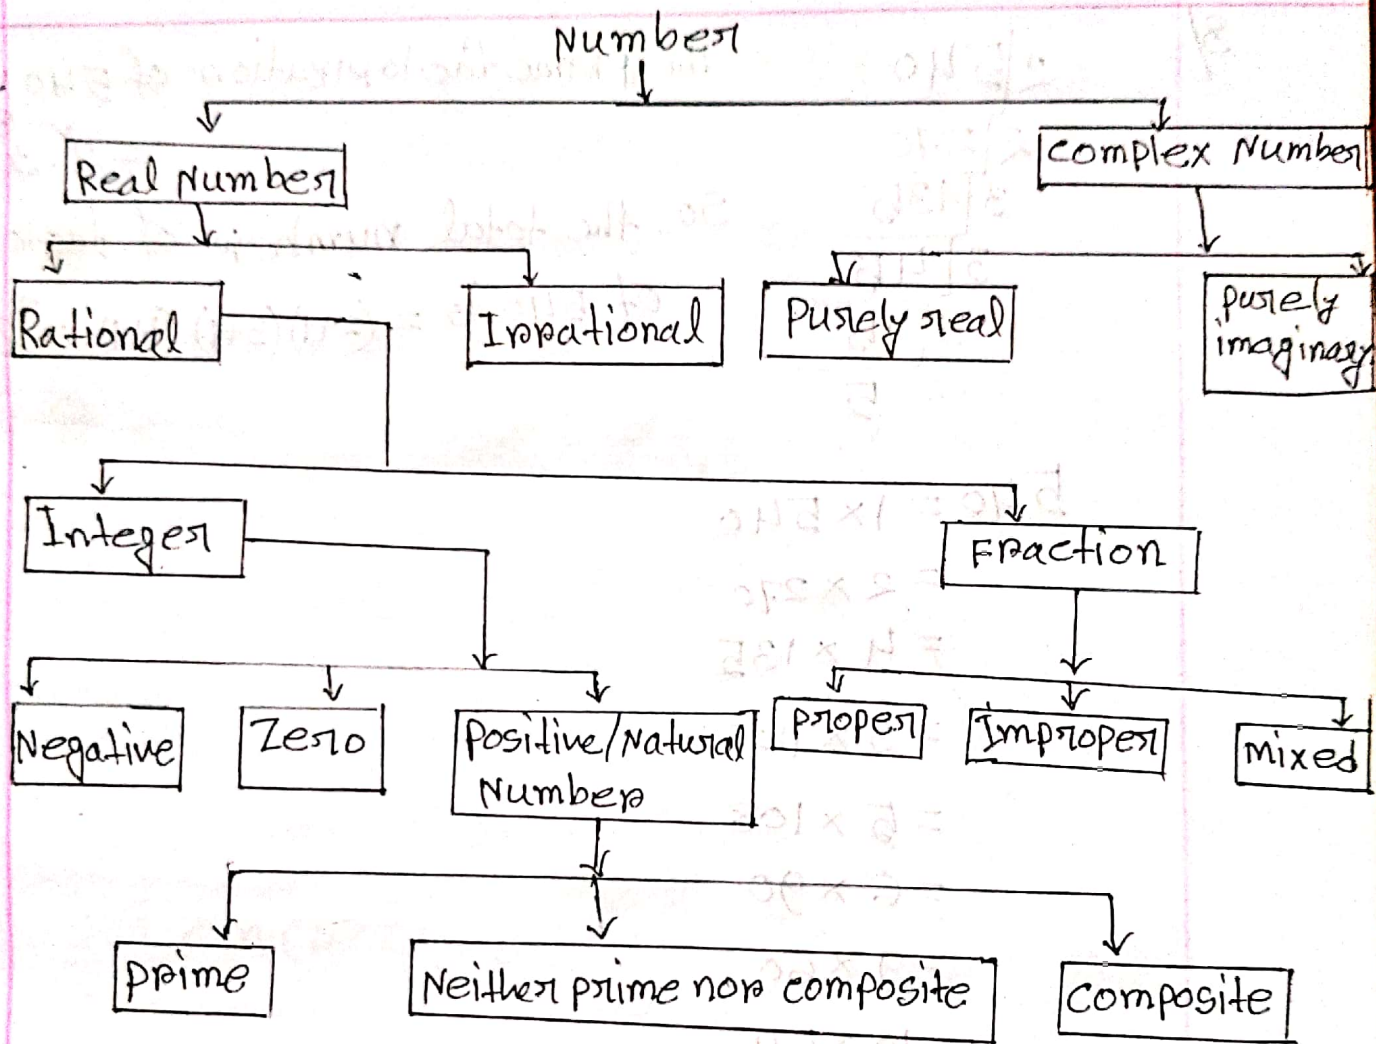 Number
Real Number
Complex Number
Rational
Irrational
Purely real
purely
imaginary
Integer
Fraction
Negative
Zero
Positive/Natural
Number
proper
Improper
mixed
prime
Neither prime nor composite
composite